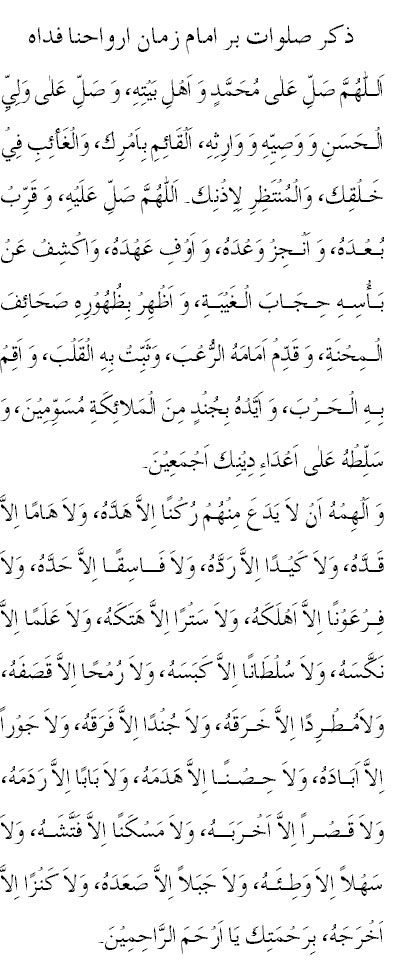 ذکر صلوات بر امام زمان ارواحنا فداه
اَللّٰهُمَّ صَلِّ عَلٰى مُحَمَّدٍ وَ اَهْلِ بَيْتِهِ، وَ صَلِّ عَلٰى وَلِيِّ
الْحَسَنِ وَ وَصِيِّهِ وَ وَارِثِهِ، اَلْقَائِمِ بِاَمْرِكَ، وَالْغَائِبِ فِيْ
خَلْقِكَ، وَالْمُنْتَظِرِ لِاِذْنِكَ. اَللّٰهُمَّ صَلِّ عَلَيْهِ، وَ قَرِّبْ
بُعْدَهُ، وَ اَنْجِزْ وَعْدَهُ، وَ اَوْفِ عَهْدَهُ، وَاكْشِفْ عَنْ
بَأْسِهِ حِجَابَ الْغَيْبَةِ، وَ اَظْهِرْ بِظُهُوْرِهِ صَحَائِفَ
الْمِحْنَةِ، وَ قَدِّمْ اَمَامَهُ الرُّعْبَ، وَثَبِّتْ بِهِ الْقَلْبَ، وَ اَقِمْ
بِهِ الْحَرْبَ، وَ اَيِّدْهُ بِجُنْدٍ مِنَ الْمَلائِكَةِ مُسَوِّمِيْنَ، وَ
سَلِّطْهُ عَلٰى اَعْدَاءِ دِيْنِكَ اَجْمَعِيْنَ.
وَ اَلْهِمْهُ اَنْ لاَ يَدَعَ مِنْهُمْ رُكْنًا اِلاَّ هَدَّهُ، وَلاَ هَامًا اِلاَّ
قَدَّهُ، وَلاَ كَيْدًا اِلاَّ رَدَّهُ، وَلاَ فَاسِقًا اِلاَّ حَدَّهُ، وَلاَ
فِرْعَوْنًا اِلاَّ اَهْلَكَهُ، وَلاَ سَتْرًا اِلاَّ هَتَكَهُ، وَلاَ عَلَمًا اِلاَّ
نَكَّسَهُ، وَلاَ سُلْطَانًا اِلاَّ كَبَسَهُ، وَلاَ رُمْحًا اِلاَّ قَصَفَهُ،
وَلاَمُطْرِدًا اِلاَّ خَرَقَهُ، وَلاَ جُنْدًا اِلاَّ فَرَقَهُ، وَلاَ جَوْراً
اِلاَّ اَبَادَهُ، وَلاَ حِصْنًا اِلاَّ هَدَمَهُ، وَلاَ بَابًا اِلاَّ رَدَمَهُ،
وَلاَ قَصْراً اِلاَّ اَخْرَبَهُ، وَلاَ مَسْكَنًا اِلاَّ فَتَّشَهُ، وَلاَ
سَهْلاً اِلاَ وَطِئَهُ، وَلاَ جَبَلاً اِلاَّ صَعَدَهُ، وَلاَ كَنْزًا اِلاَّ
اَخْرَجَهُ، بِرَحْمَتِكَ يَا اَرْحَمَ الرَّاحِمِيْنَ.